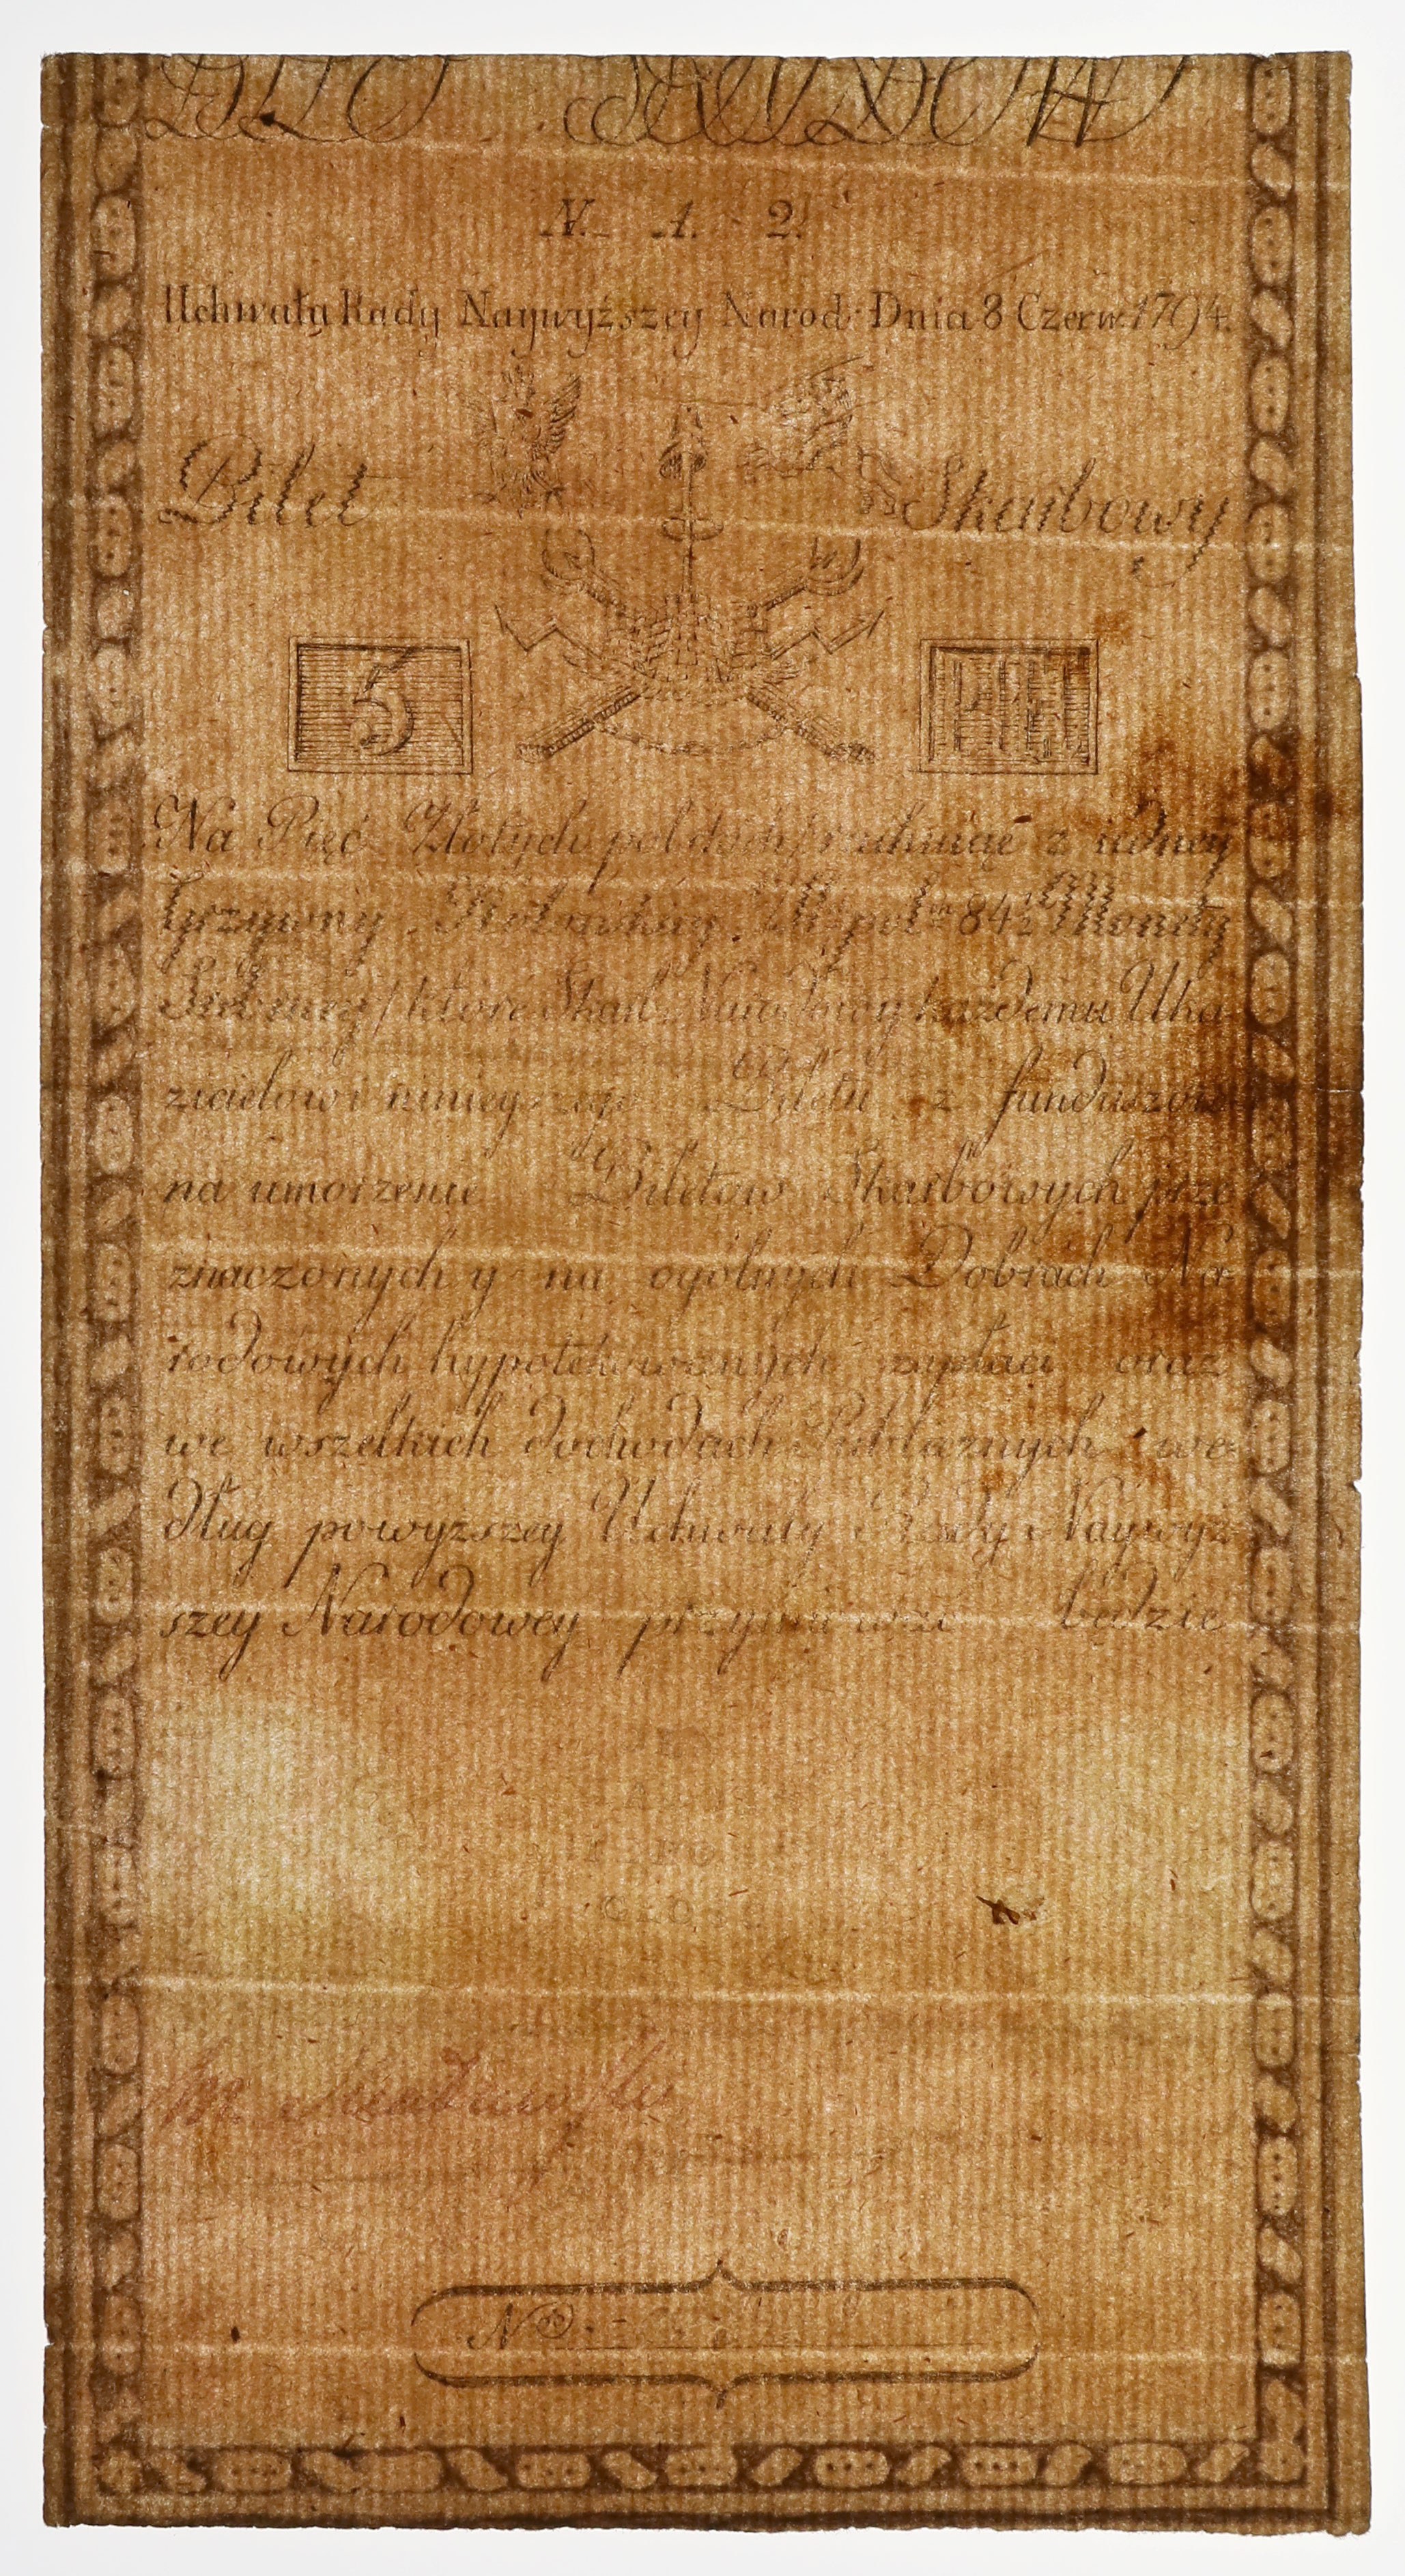 N. A. 2.
Uchwały Rady Naywyższey Narod: Dnia 8 Czerw. 1794.
Bilet Skarbowy
5 PIĘĆ
Na Pięć Złotych polskich / rachuiąc z iedney
Grzywny Kolońskiey Zł. pol. 84½ Monety
Srebrney / które Skarb Narodowy każdemu Uka
zicielowi ninieyszego Biletu z funduszow
na umorzenie Biletow Skarbowych prze
znaczonych y na ogolnych Dobrach Na
rodowych hypotekowanych zapłaci oraz
we wszelkich dochodach Publicznych we
dług powyższey Uchwały Rady Naywyż
szey Narodowey przyimować będzie
No.